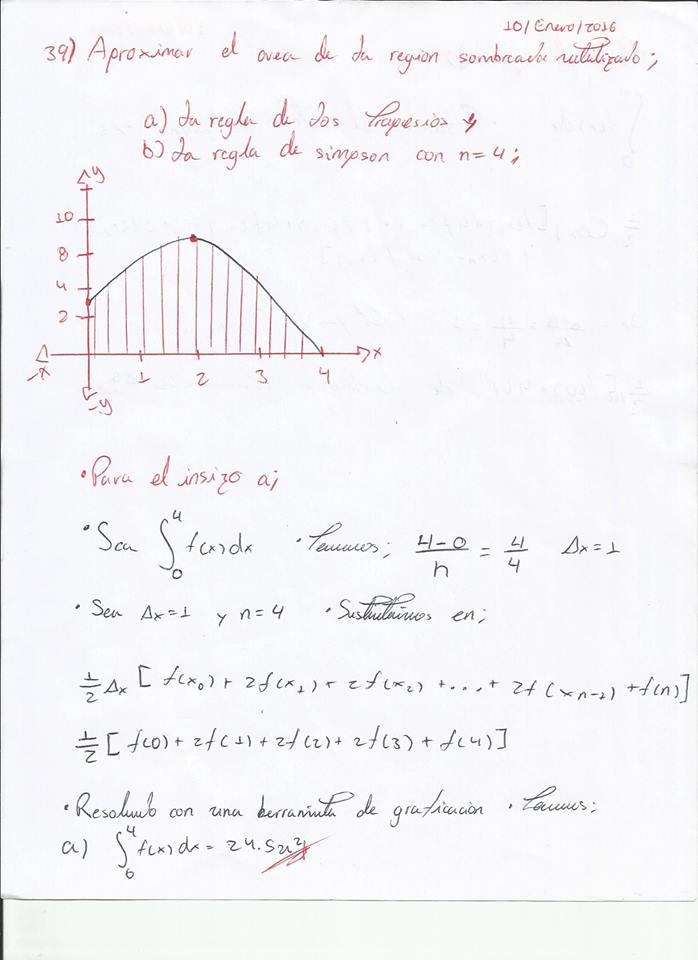 10/Enero/2016
39) Aproximar el area de la region sombreada utilizado;
a) la regla de los Trapesios y
b) la regla de simpson con n=4;
y
10
8
4
2
-x 1 2 3 4 x
-y
• Para el insizo a;
• Sea ∫₀⁴ f(x)dx • Tenemos; 4-0/n = 4/4 Δx=1
• Sea Δx=1 y n=4 • Sustituimos en;
1/2 Δx [f(x₀) + 2f(x₁) + 2f(x₂) + ... + 2f(xn-1) + f(n)]
1/2 [f(0) + 2f(1) + 2f(2) + 2f(3) + f(4)]
• Resolvendo con una herraminta de graficacion • Tenemos;
a) ∫₀⁴ f(x)dx = 24.5u²